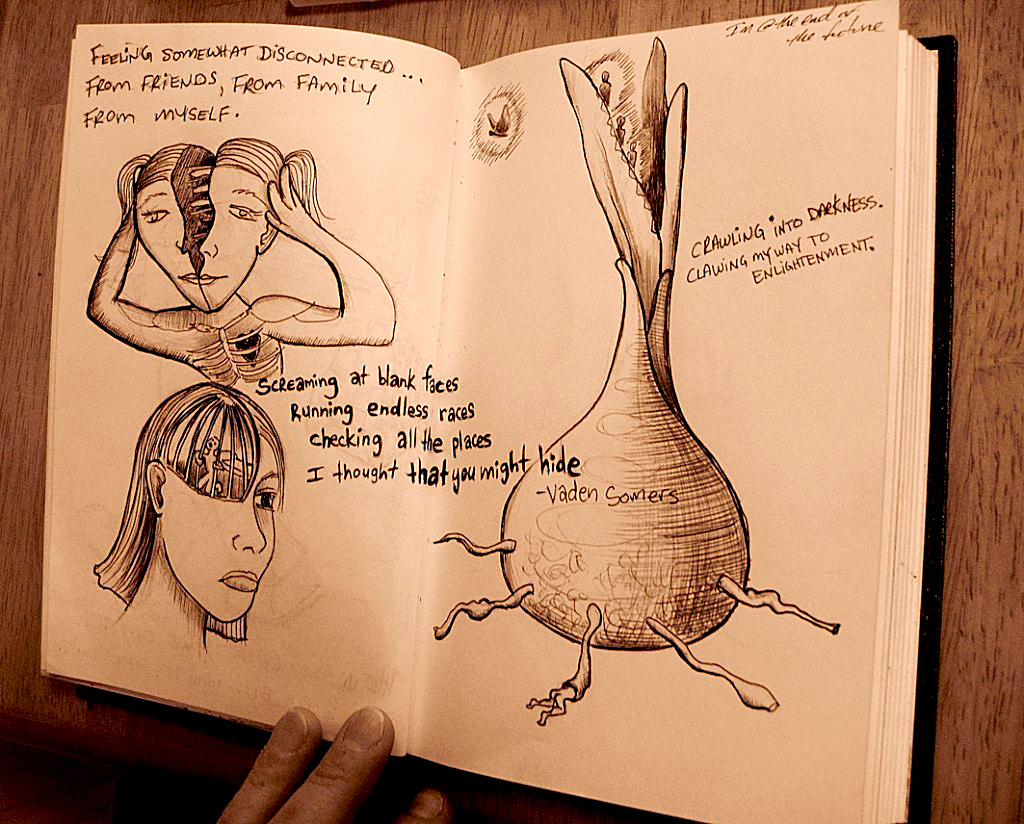 FEELING SOMEWHAT DISCONNECTED...
FROM FRIENDS, FROM FAMILY
FROM MYSELF.
Screaming at blank faces
Running endless races
checking all the places
I thought that you might hide
-Vaden Somers
I'm @ the end of
the future
CRAWLING INTO DARKNESS.
CLAWING MY WAY TO
ENLIGHTENMENT.